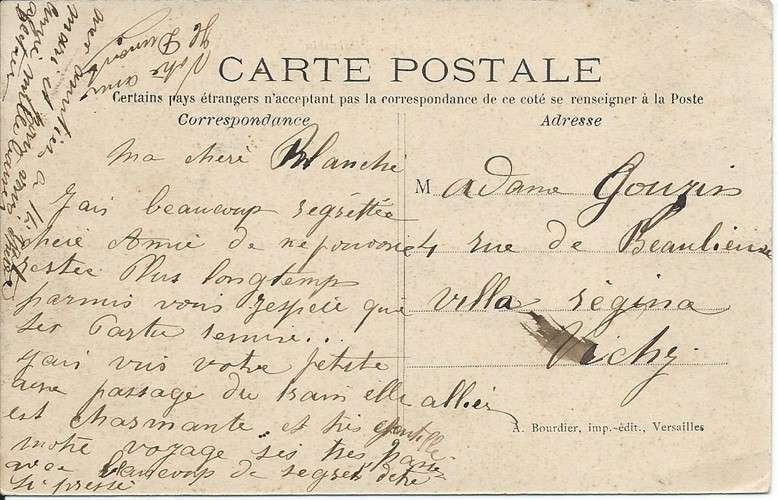 CARTE POSTALE
Certains pays étrangers n'acceptent pas la correspondance de ce coté se renseigner à la Poste
Correspondance
Adresse
ma chere Blanche
J'ais beaucoup regrettée
chere Amie de ne pouvoir
restée Plus longtemp
parmis vous J'espere que
ser Partie remise...
J'ais vus votre petite
au passage du train elle
est charmante et tres gentille
notre voyage ses tres passé
avec beaucoup de regret detre
si pressé
Madame Gouzin
4 rue de Beaulieu
villa régina
Vichy
allier
A. Bourdier, imp.-édit., Versailles
mes amitiés a
mari et
mille
Votre amie